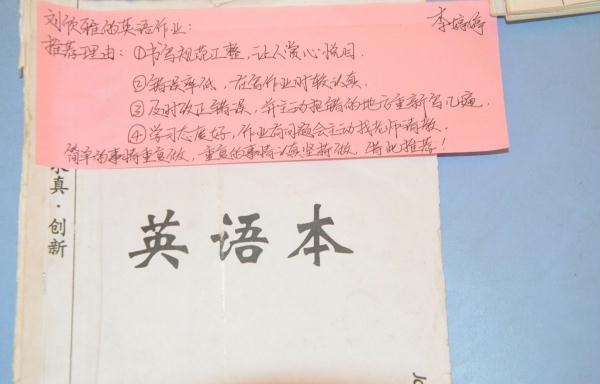 刘欣雅的英语作业： 李婷婷
推荐理由：①书写规范工整，让人赏心悦目．
②错误率低，在写作业时较认真．
③及时改正错误，并主动把错的地方重新写几遍．
④学习态度好，作业有问题会主动找老师请教．
简单的事情重复做，重复的事情认真坚持做．特此推荐！
求真·创新
英语本